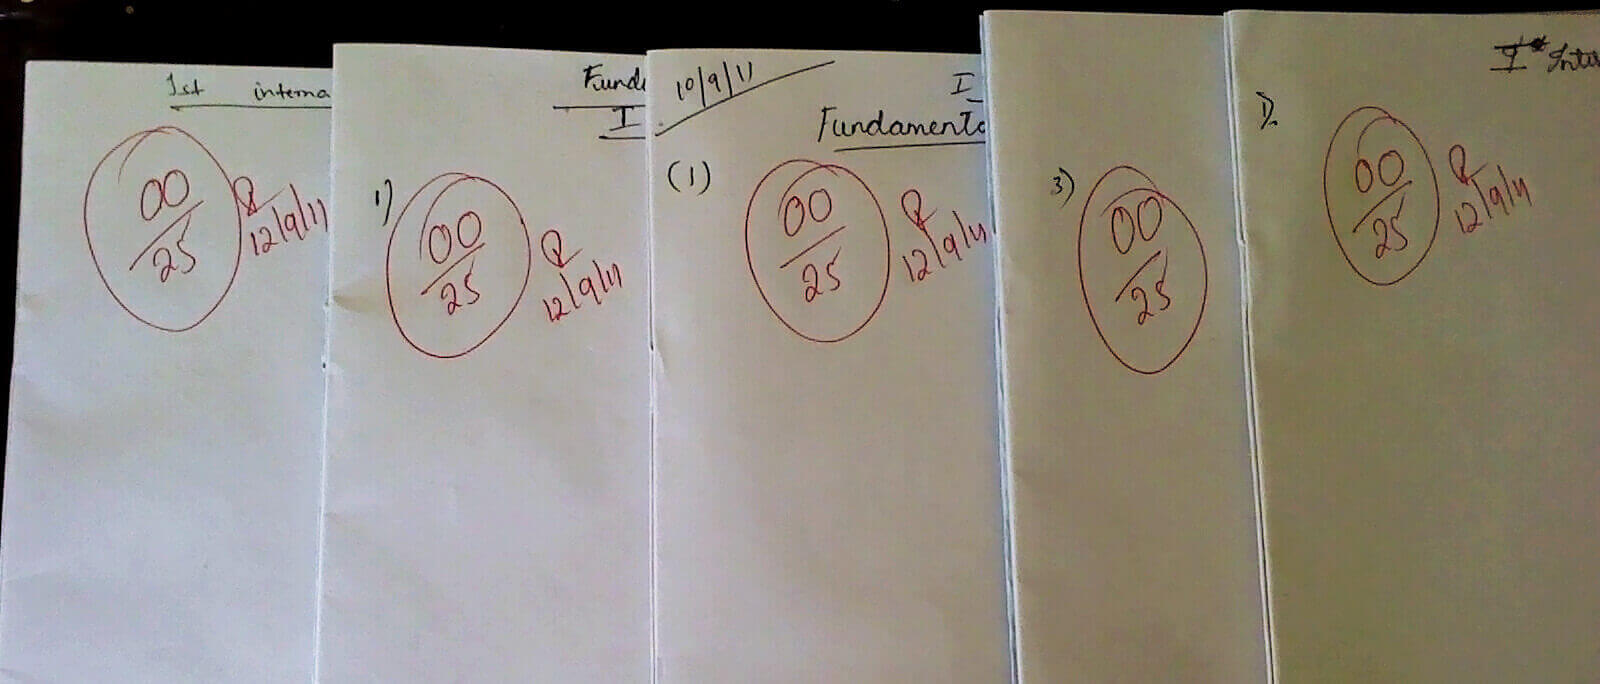 1st interna
00
25
12/9/11
Funda
I
1)
00
25
12/9/11
10/9/11
I
Fundamenta
(1)
00
25
12/9/11
3)
00
25
I
1).
00
25
12/9/11